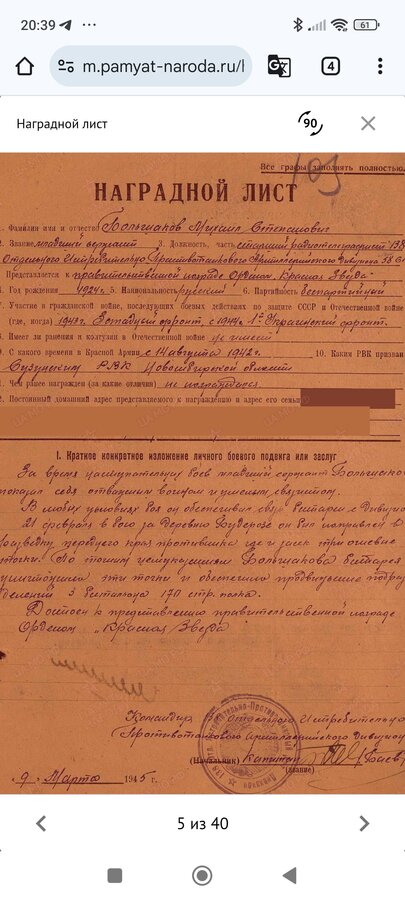 20:39
61
m.pamyat-naroda.ru/h
4
Наградной лист
90
Все графы заполнять полностью.
103
НАГРАДНОЙ ЛИСТ
1. Фамилия имя и отчество Большаков Михаил Степанович
2. Звание младший сержант 3. Должность, часть старший радиотелеграфист
Отдельного Истребительно Противотанкового Артиллерийского Дивизиона 58
Представляется к правительственной награде Орденом "Красная Звезда"
4. Год рождения 1924г. 5. Национальность русский 6. Партийность беспартийный
7. Участие в гражданской войне, последующих боевых действиях по защите СССР и Отечественной войне
(где, когда) 1943г. Западный фронт, с 1944г. 1й Украинский фронт.
8. Имеет ли ранения и контузии в Отечественной войне не имеет
9. С какого времени в Красной Армии с 14 августа 1942г. 10. Каким РВК призван
Сузунским РВК Новосибирской области
11. Чем ранее награжден (за какие отличия) не награждался
2. Постоянный домашний адрес представляемого к награждению и адрес его семьи
I. Краткое конкретное изложение личного боевого подвига или заслуг
За время наступательных боев младший сержант Большаков
показал себя отважным воином и умелым связистом.
В любых условиях боя он обеспечивал связь батареи с Дивизи
21 февраля в бою за деревню он был направлен в
разведку переднего края противника где и засек три огневые
точки. По точным целеуказаниям Большакова батарея
уничтожила эти точки и обеспечила продвижение подраз
делений 3 батальона 170 стр. полка.
Достоин к представлению правительственной награде
Орденом "Красная Звезда"
Командир Отдельного Истребительно
Противотанкового Артиллерийского Дивизиона
(Начальник) Капитан
(звание)
9 Марта 1945 г.
5 из 40